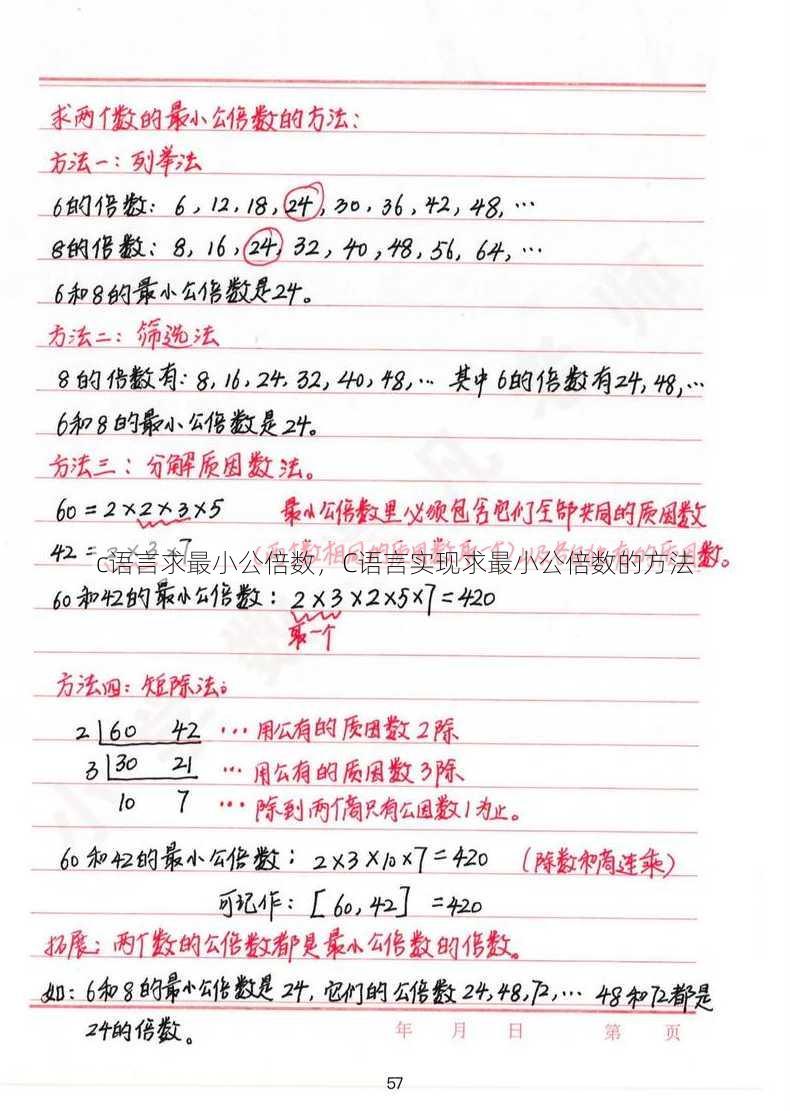 求两个数的最小公倍数的方法：
方法一：列举法
6的倍数：6，12，18，24，30，36，42，48，…
8的倍数：8，16，24，32，40，48，56，64，…
6和8的最小公倍数是24。
方法二：筛选法
8的倍数有：8，16，24，32，40，48，… 其中6的倍数有24，48，…
6和8的最小公倍数是24。
方法三：分解质因数法。
60=2×2×3×5 最小公倍数里必须包含它们全部共同的质因数
42=2×3×7 数。
c语言求最小公倍数，C语言实现求最小公倍数的方法
60和42的最小公倍数：2×3×2×5×7=420
取一个
方法四：短除法。
2 60 42 …用公有的质因数2除
3 30 21 …用公有的质因数3除
10 7 …除到两个商只有公因数1为止。
60和42的最小公倍数：2×3×10×7=420 （除数和商连乘）
可记作：[60，42]=420
拓展：两个数的公倍数都是最小公倍数的倍数。
如：6和8的最小公倍数是24，它们的公倍数24，48，72，… 48和72都是
24的倍数。
年 月 日 第 页
57